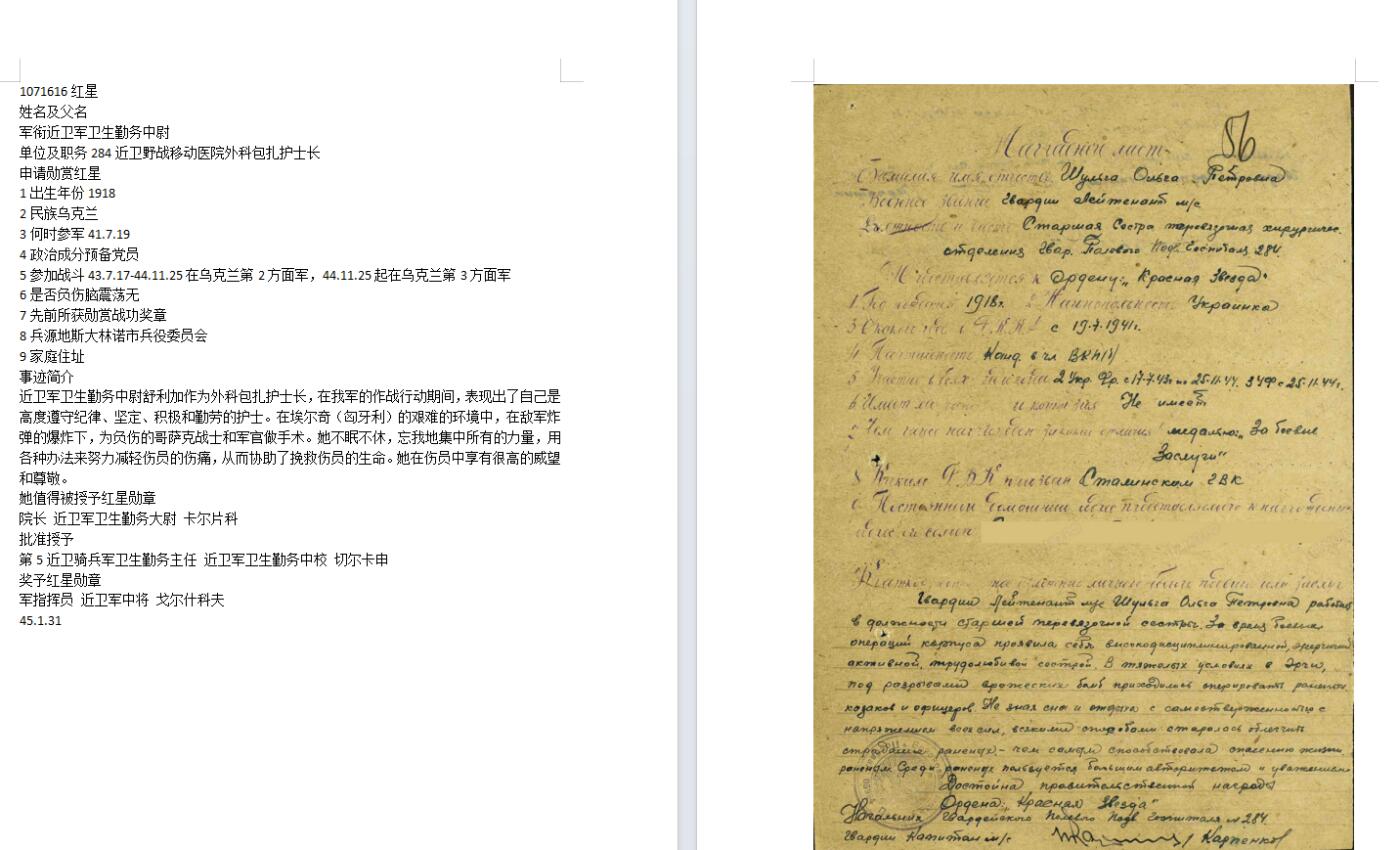 1071616 红星
姓名及父名
军衔近卫军卫生勤务中尉
单位及职务 284 近卫野战移动医院外科包扎护士长
申请勋赏红星
1 出生年份 1918
2 民族乌克兰
3 何时参军 41.7.19
4 政治成分预备党员
5 参加战斗 43.7.17-44.11.25 在乌克兰第 2 方面军，44.11.25 起在乌克兰第 3 方面军
6 是否负伤脑震荡无
7 先前所获勋赏战功奖章
8 兵源地斯大林诺市兵役委员会
9 家庭住址
事迹简介
近卫军卫生勤务中尉舒利加作为外科包扎护士长，在我军的作战行动期间，表现出了自己是
高度遵守纪律、坚定、积极和勤劳的护士。在埃尔奇（匈牙利）的艰难的环境中，在敌军炸
弹的爆炸下，为负伤的哥萨克战士和军官做手术。她不眠不休，忘我地集中所有的力量，用
各种办法来努力减轻伤员的伤痛，从而协助了挽救伤员的生命。她在伤员中享有很高的威望
和尊敬。
她值得被授予红星勋章
院长 近卫军卫生勤务大尉 卡尔片科
批准授予
第 5 近卫骑兵军卫生勤务主任 近卫军卫生勤务中校 切尔卡申
奖予红星勋章
军指挥员 近卫军中将 戈尔什科夫
45.1.31
56
Наградной лист
Фамилия имя отчество Шульга Ольга Петровна
Военное звание Гвардии Лейтенант м/с
Должность и часть Старшая Сестра перевязочная хирургичес.
отделения Гвар. Полевого Подв. Госпиталя 284.
Представляется к Ордену: „Красная Звезда"
1 Год рождения 1918г. 2 Национальность Украинка
3 С какого года в Р.К.К.А с 19.7.1941г.
4 Партийность Канд. в чл ВКП(б)
5 Участие в боях 2 Укр. Фр. с 17.7.43г. по 25.11.44. 3 УФ с 25.11.44г.
6 Имеет ли и контузия Не имеет
7 Чем ранее награжден медалью: „За боевые
Заслуги"
8 Каким РВК призван Сталинским ГВК
9 Постоянный домашний адрес представляемого к награждению
адрес его семьи
Гвардии Лейтенант м/с Шульга Ольга Петровна работая
в должности старшей перевязочной сестры. За время боевых
операций корпуса проявила себя высокодисциплинированной, энергичной
активной, трудолюбивой сестрой. В тяжелых условиях в Эрчи,
под разрывами вражеских бомб приходилось оперировать раненых
козаков и офицеров. Не зная сна и отдыха с самоотверженностью с
напряжением всех сил, всякими способами старалась облегчить
страдания раненых, - чем самым способствовала спасению жизни
раненым. Среди раненых пользуется большим авторитетом и уважением
Достойна правительственной награды
Ордена: „Красная Звезда"
Начальник Гвардейского Полевого Подв Госпиталя №284.
Гвардии Капитан м/с Карпенко